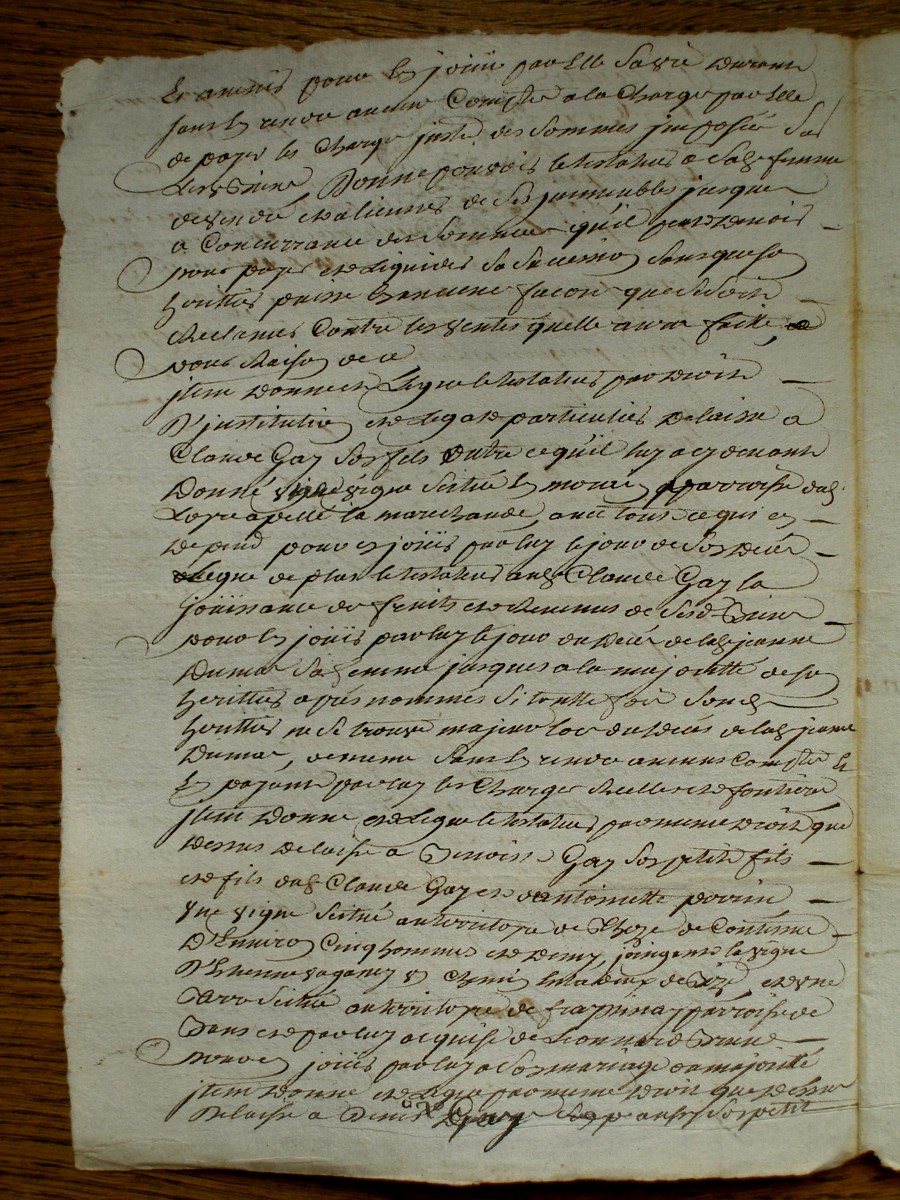 et amnis pour en jouir par elle sa vie durant
sans en rendre aucun Compte a la Charge par elle
de payer les Charges justes des Sommes imposée
Donne pouvoir le testateur a sad femme
de vendre et aliener de ses immeubles jusque
a Concurrance des Sommes qu'il peut devoir
pour payer et liquider sa succession sans que son
heritier puisse en aucune facon que ce soit
reclamer Contre les ventes quelle aura faitte
pour raison de ce
item donne et legue le testateur par droit
D'institution et legat particulier delaisse a
Claude Gay son fils outre ce qu'il luy a cy devant
Donné une vigne Scituée en paroisse dud
apellé la marechaude, avec tout ce qui en
depend pour en jouir par luy le jour de son déces
legue de plus le testateur aud Claude Gay la
jouissance des fruits et revenus de sesd
pour en jouir par luy le jour du déces de lad jeanne
Dumas sa femme jusques a la majoritté de son
heritier aprés nommés Si toutte fois Sond
heritier ne se trouve majeur lors du déces de lad jeanne
Dumas, de meme sans en rendre aucuns Compte et
en payant par luy les Charges réelles et foncière
item Donne et legue le testateur par meme droit que
dessus delaisse a Benoist Gay son petit fils
et fils dud Claude Gay et d'antoinette perrin
une vigne Scitué au territoire de de Contenue
D'Environ Cinq hommes et demy, joingnant la vigne
D'Etienne et une
terre Scitué au territoire de paroisse de
et par luy acquise de Leonnard
pour en jouir par luy a son mariage ou majorité
item Donne et legue par meme droit que dessus
delaisse a Denis Gay aussy son petit